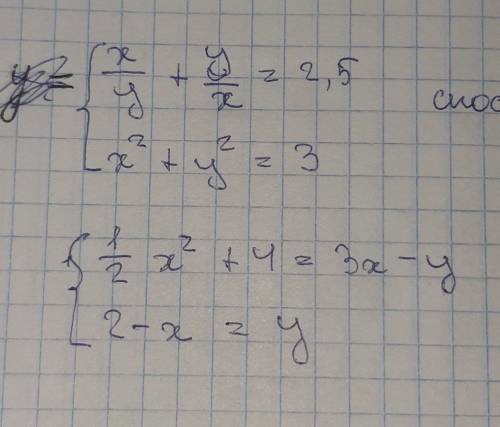 x/y + y/x = 2,5
x² + y² = 3
1/2 x² + 4 = 3x - y
2 - x = y